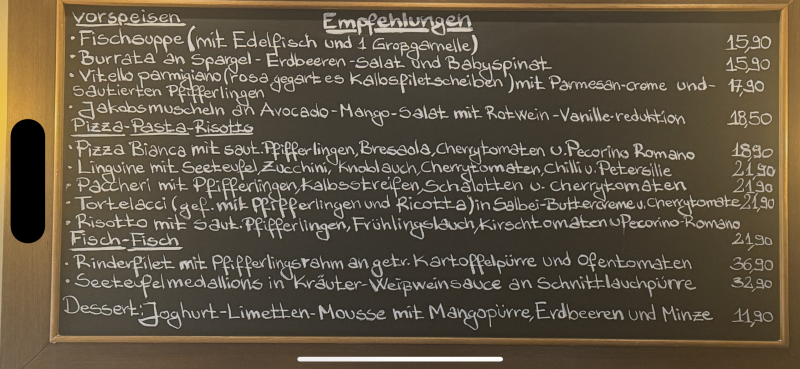 Vorspeisen
Empfehlungen
• Fischsuppe (mit Edelfisch und 1 Großgarnelle) 15,90
• Burrata an Spargel-Erdbeeren-Salat und Babyspinat 15,90
• Vitello parmigiano (rosa gegartes Kalbsfiletscheiben) mit Parmesan-creme und- 17,90
sautierten Pfifferlingen
• Jakobsmuscheln an Avocado-Mango-Salat mit Rotwein-Vanille-reduktion 18,50
Pizza-Pasta-Risotto
• Pizza Bianca mit saut. Pfifferlingen, Bresaola, Cherrytomaten u. Pecorino Romano 18,90
• Linguine mit Seeteufel, Zucchini, Knoblauch, Cherrytomaten, Chilli u. Petersilie 21,90
• Paccheri mit Pfifferlingen, Kalbsstreifen, Schalotten u. cherrytomaten 21,90
• Tortelacci (gef. mit Pfifferlingen und Ricotta) in Salbei-Buttercreme u. Cherrytomate 21,90
• Risotto mit saut. Pfifferlingen, Frühlingslauch, Kirschtomaten u Pecorino-Romano
21,90
Fisch-Fisch
• Rinderfilet mit Pfifferlingsrahm an getr. Kartoffelpürre und Ofentomaten 36,90
• Seeteufelmedallions in Kräuter-Weißweinsauce an Schnittlauchpürre 32,90
Dessert: Joghurt-Limetten-Mousse mit Mangopürre, Erdbeeren und Minze 11,90